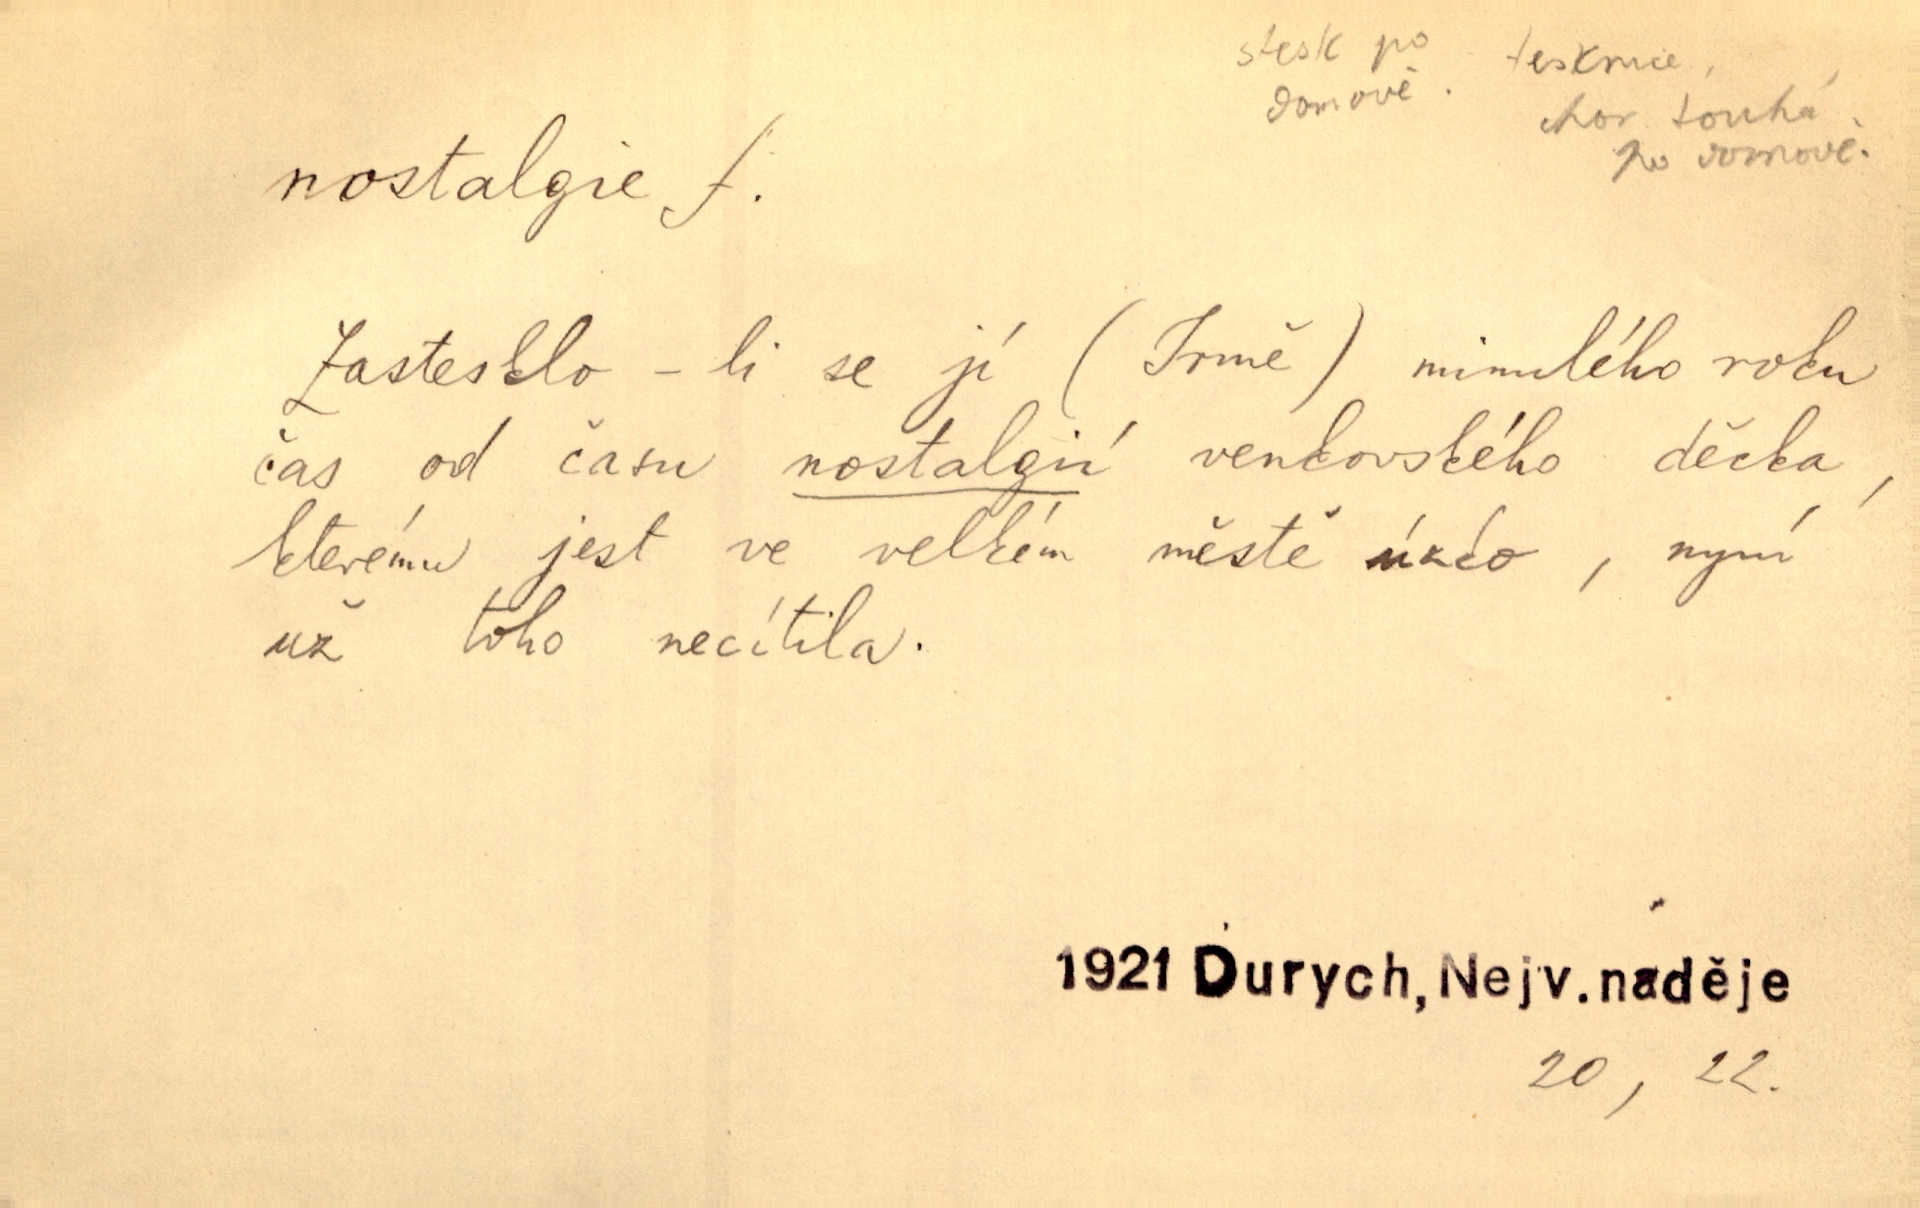 stesk po
domově.
tesknice,
chor. touha
po domově.
nostalgie f.
Zastesklo-li se jí (Irmě) minulého roku
čas od času nostalgií venkovského děcka,
kterému jest ve velkém městě úzko, nyní
už toho necítila.
1921 Durych, Nejv. naděje
20, 22.